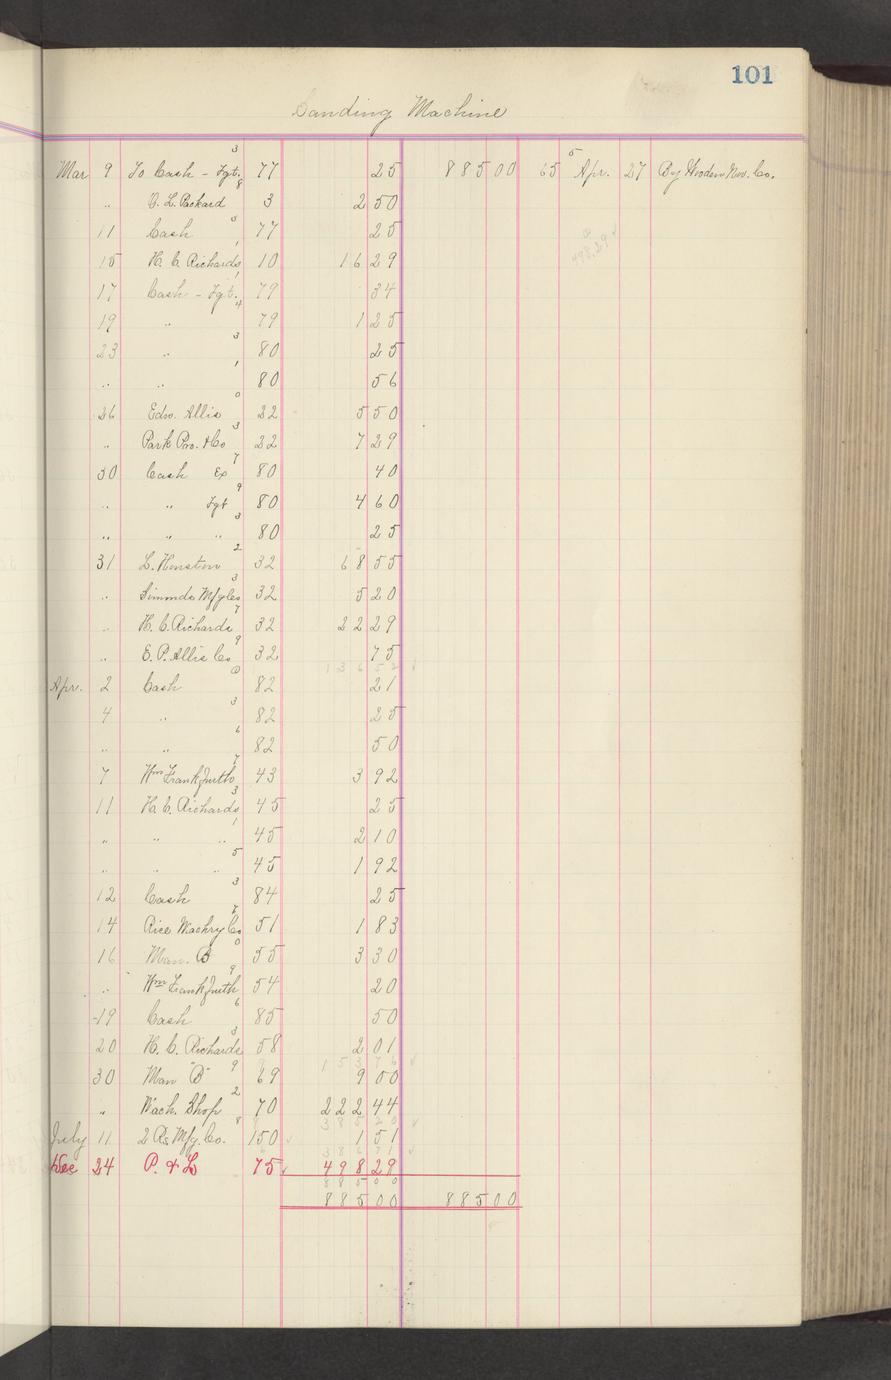 101
Sanding Machine
3
Mar 9 To Cash - Fgt. 77 25 885 00 65 5 Apr. 27 By Wooden Nov. Co.
8
" O. L. Packard 3 2 50
3
11 Cash 77 25
1
498.29 ✓
15 H. C. Richards 10 16 29
1
17 Cash - Fgt. 79 34
4
19 " 79 1 25
3
23 " 80 25
1
" " 80 56
0
26 Edw. Allis 22 5 50
3
" Park Bro. & Co 22 7 29
7
30 Cash Ex 80 40
9
" " Fgt 80 4 60
3
" " " 80 25
2
31 32 68 55
3
" Simonds Mfg Co 32 5 20
7
" H. C. Richards 32 22 29
9
" E. P. Allis Co 32 75
136 52 ✓
Apr. 2 Cash 82 21
3
4 " 82 25
6
" " 82 50
7
7 Wm Frankfurth 43 3 92
3
11 H. C. Richards 45 25
1
" " " 45 2 10
5
" " " 45 1 92
3
12 Cash 84 25
14 Rice Machry Co 51 1 83
0
16 Man. B 55 3 30
9
" Wm Frankfurth 54 20
6
19 Cash 85 50
3
20 H. C. Richards 58 2 01
153 76 ✓
9
30 Man "B" 69 9 00
2
" Mach. Shop 70 222 44
385 20 ✓
8
July 11 2 Rs Mfg. Co. 150 ✓ 1 51
386 71 ✓
Dec 24 P. & L 75 ✓ 498 29
885 00
885 00 885 00